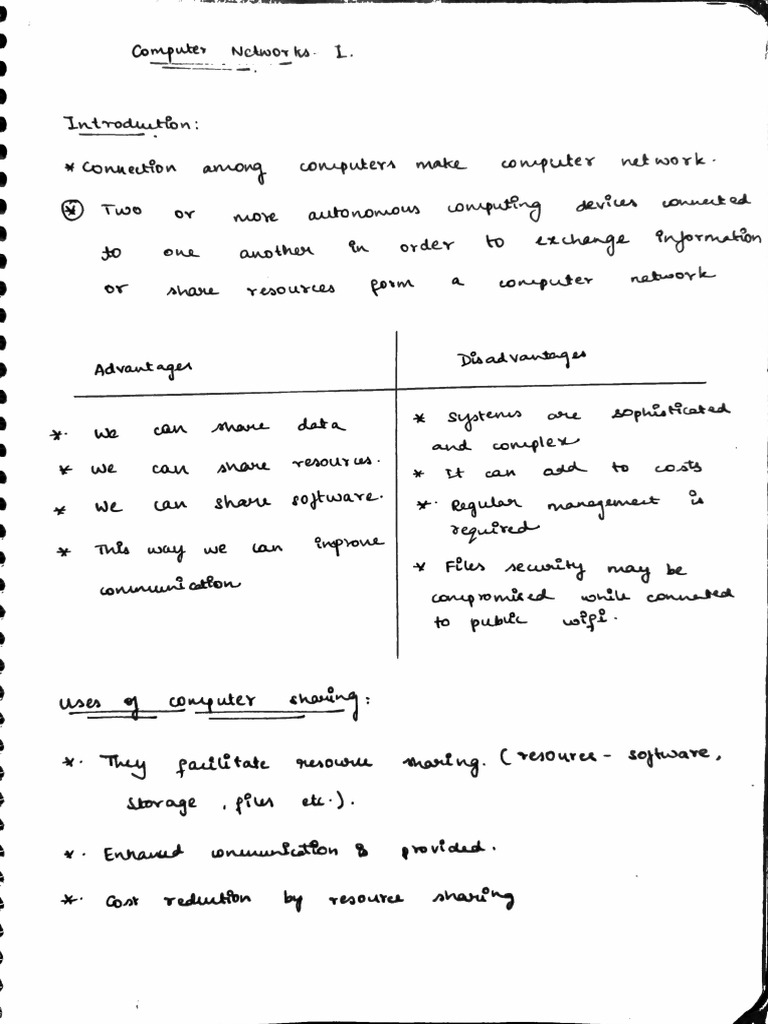 Computer Networks - I.
Introduction:
* Connection among computers make computer network.
* Two or more autonomous computing devices connected
to one another in order to exchange information
or share resources form a computer network
Advantages
*. We can share data
* We can share resources.
* We can share software.
* This way we can improve
communication
Disadvantages
* Systems are sophisticated
and complex
* It can add to costs
*. Regular management is
required
* Files security may be
compromised while connected
to public wifi.
Uses of computer sharing:
*. They facilitate resource sharing. (resources - software,
storage, files etc.).
*. Enhanced communication is provided.
*. Cost reduction by resource sharing